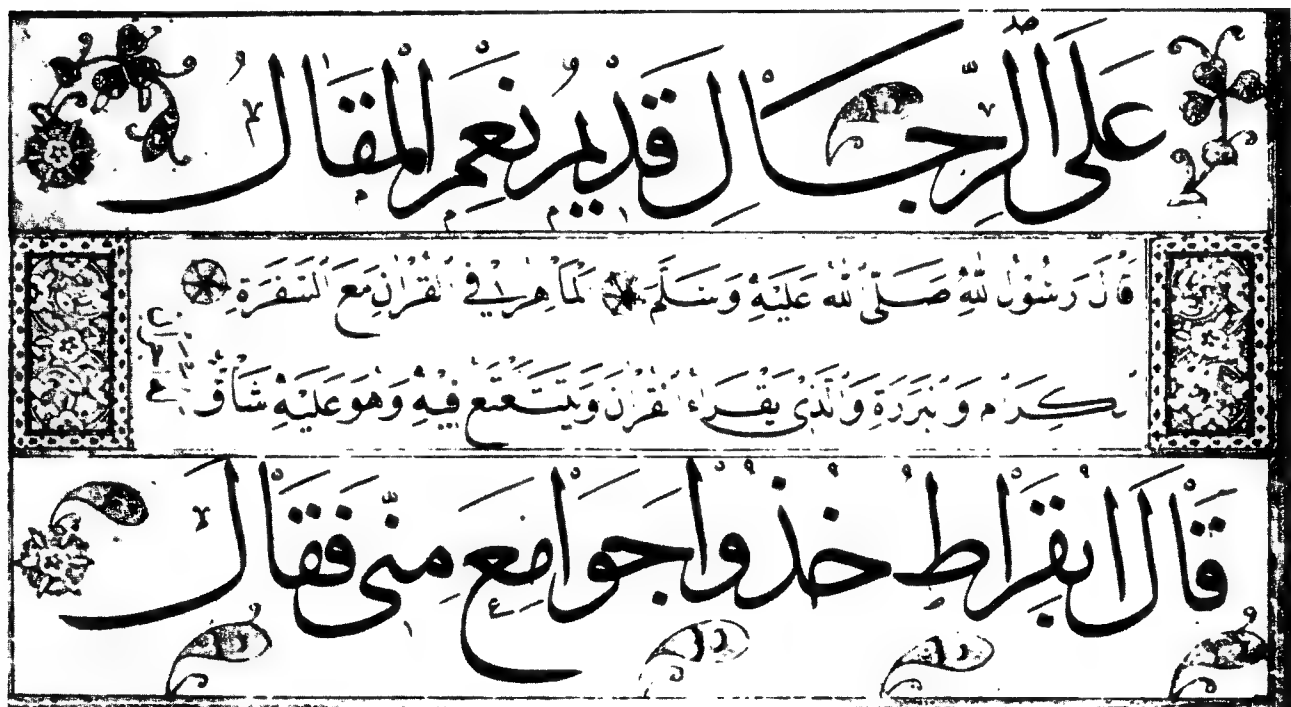 عَلَى الرِّجَالِ قَدِيْمُ نِعْمَ الْمَقَالُ
قَالَ رَسُوْلُ اللهِ صَلَّى اللهُ عَلَيْهِ وَسَلَّمَ الْمَاهِرُ فِي الْقُرْاٰنِ مَعَ السَّفَرَةِ
الكِرَامِ وَالْبَرَرَةِ وَالَّذِى يَقْرَاءُ الْقُرْاٰنَ وَيَتَتَعْتَعُ فِيْهِ وَهُوَ عَلَيْهِ شَاقٌّ
قَالَ ابُقْرَاطُ خُذُوْا جَوَامِعَ مِنِّى فَقَالَ